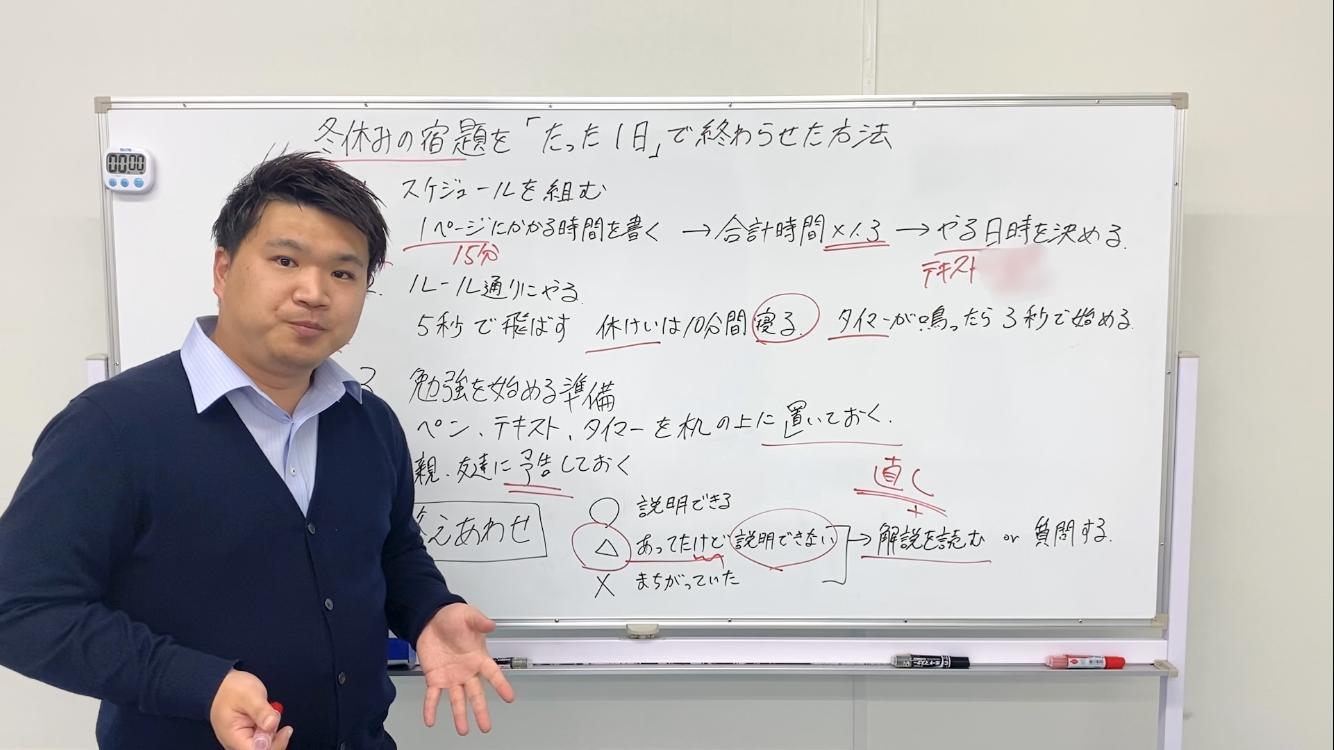 冬休みの宿題を「たった1日」で終わらせた方法
スケジュールを組む
1ページにかかる時間を書く → 合計時間×1.3 → やる日時を決める.
15分
テキスト
2. ルール通りにやる
5秒で飛ばす 休けいは10分間寝る. タイマーが鳴ったら3秒で始める
3 勉強を始める準備
ペン、テキスト、タイマーを机の上に置いておく.
親.友達に予告しておく
直し
+
○ 説明できる
えあわせ
△ あってたけど説明できない → 解説を読む or 質問する.
× まちがっていた
00:00